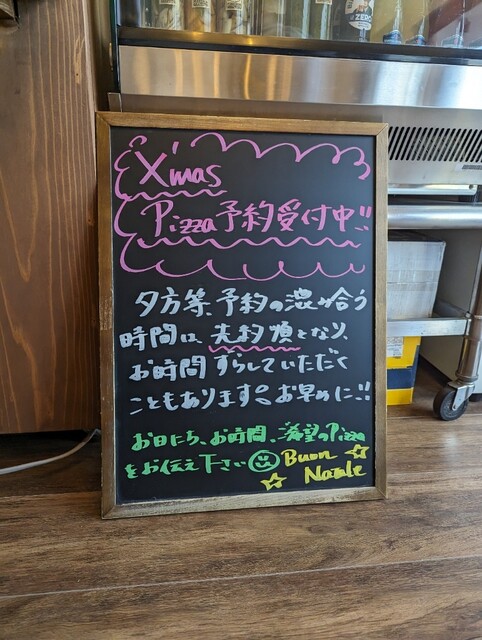 X'mas
Pizza予約受付中!!
夕方等、予約の混み合う
時間は、先約順となり、
お時間ずらしていただく
こともあります。お早めに!!
お日にち、お時間、ご希望のPizza
をお伝え下さい Buon
Natale
ZERO